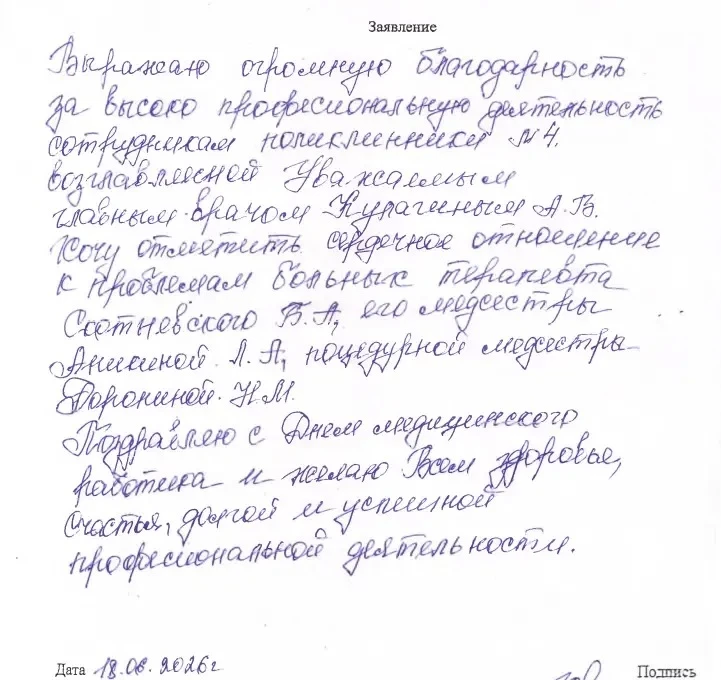 Заявление
Выражаю огромную благодарность
за высоко професиональную деятельность
сотрудникам поликлинники №4.
возглавляемой Уважаемым
главным врачом Кулагиным А.В.
Хочу отметить сердечное отношение
к проблемам больных терапевта
Сотневского Б.А, его медсестры
Аникиной Л.А, поцедурной медсестры
Дорониной Н.М.
Поздравляю с Днем медицинского
работника и желаю Всем здоровья,
счастья, долгой и успешной
професиональной деятельности.
Дата 18.06.2026г
Подпись